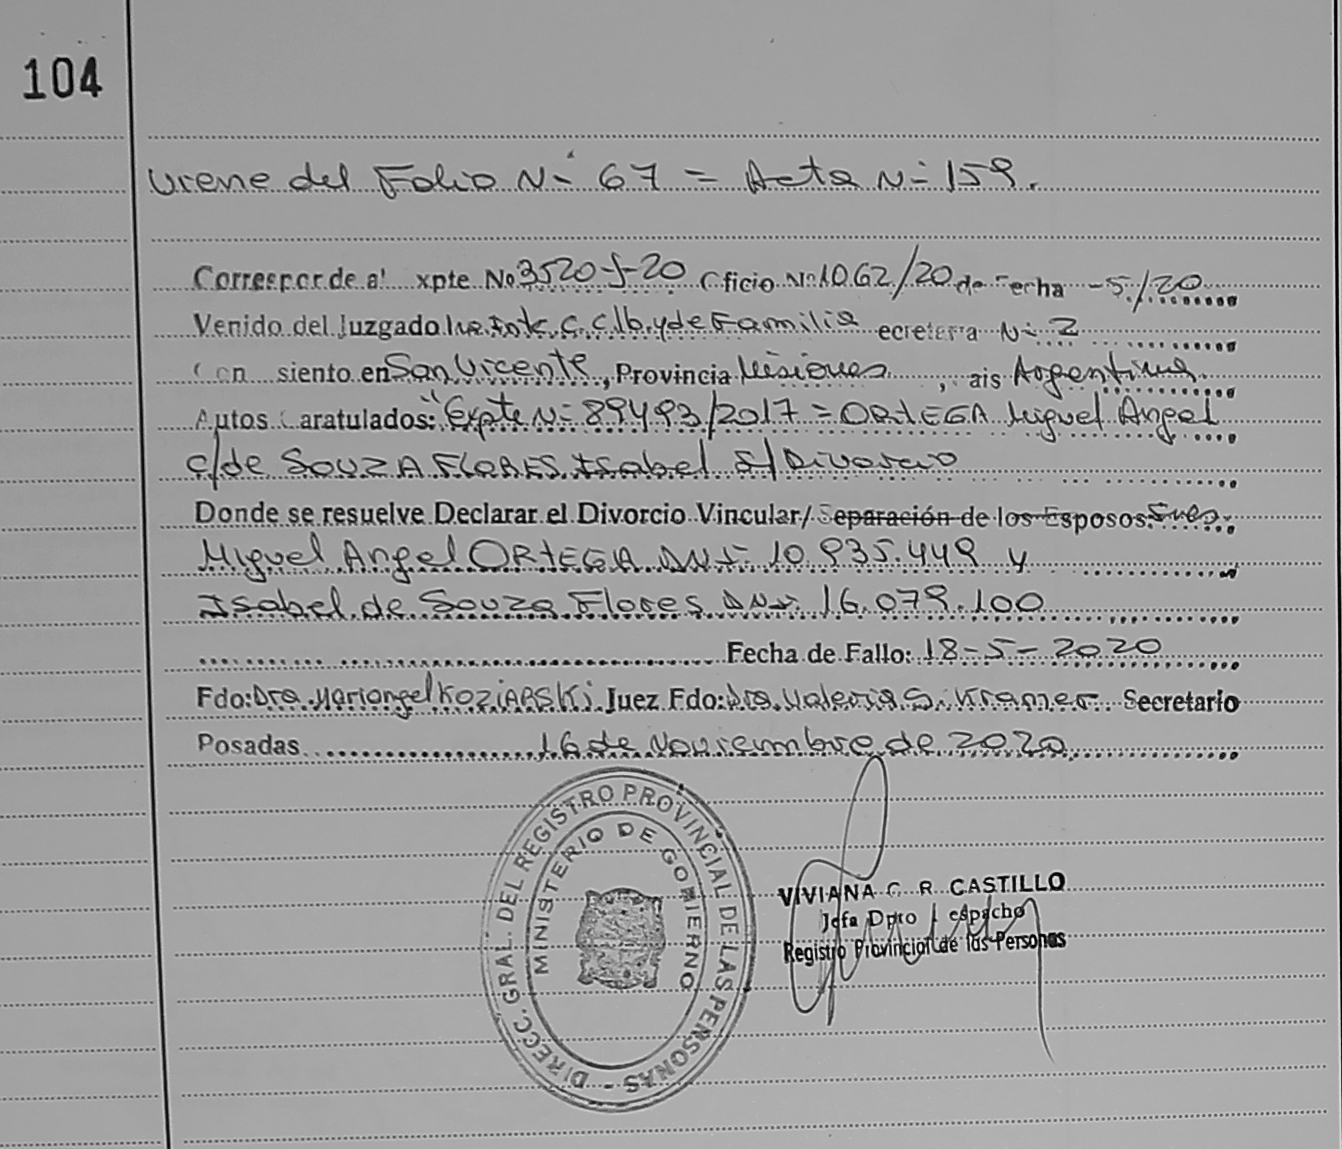 104
Viene del Folio Nº 67 = Acta Nº 159.
Corresponde al xpte No 3520-J-20 Oficio Nº 1062/20 de Fecha -5/20
Venido del Juzgado 1ra. Inst. C. C. lb. y de Familia ecretaria Nº 2
Con siento en San Vicente, Provincia Misiones, ais Argentina
Autos Caratulados: "Expte Nº 89493/2017 = ORTEGA Miguel Angel
c/de SOUZA FLORES Isabel S/Divorcio
Donde se resuelve Declarar el Divorcio Vincular/ Separación de los Esposos: Sres.
Miguel Angel ORTEGA DNI- 10.935.449 y
Isabel de Souza Flores DNI- 16.079.100
Fecha de Fallo: 18-5-2020
Fdo: Dra. Mariangel KOZIARSKI Juez Fdo: Dra. Valeria S. Kramer Secretario
Posadas 16 de Noviembre de 2020
DIRECC. GRAL. DEL REGISTRO PROVINCIAL DE LAS PERSONAS -
MINISTERIO DE GOBIERNO
VIVIANA C. R. CASTILLO
Jefa Dpto Despacho
Registro Provincial de las Personas